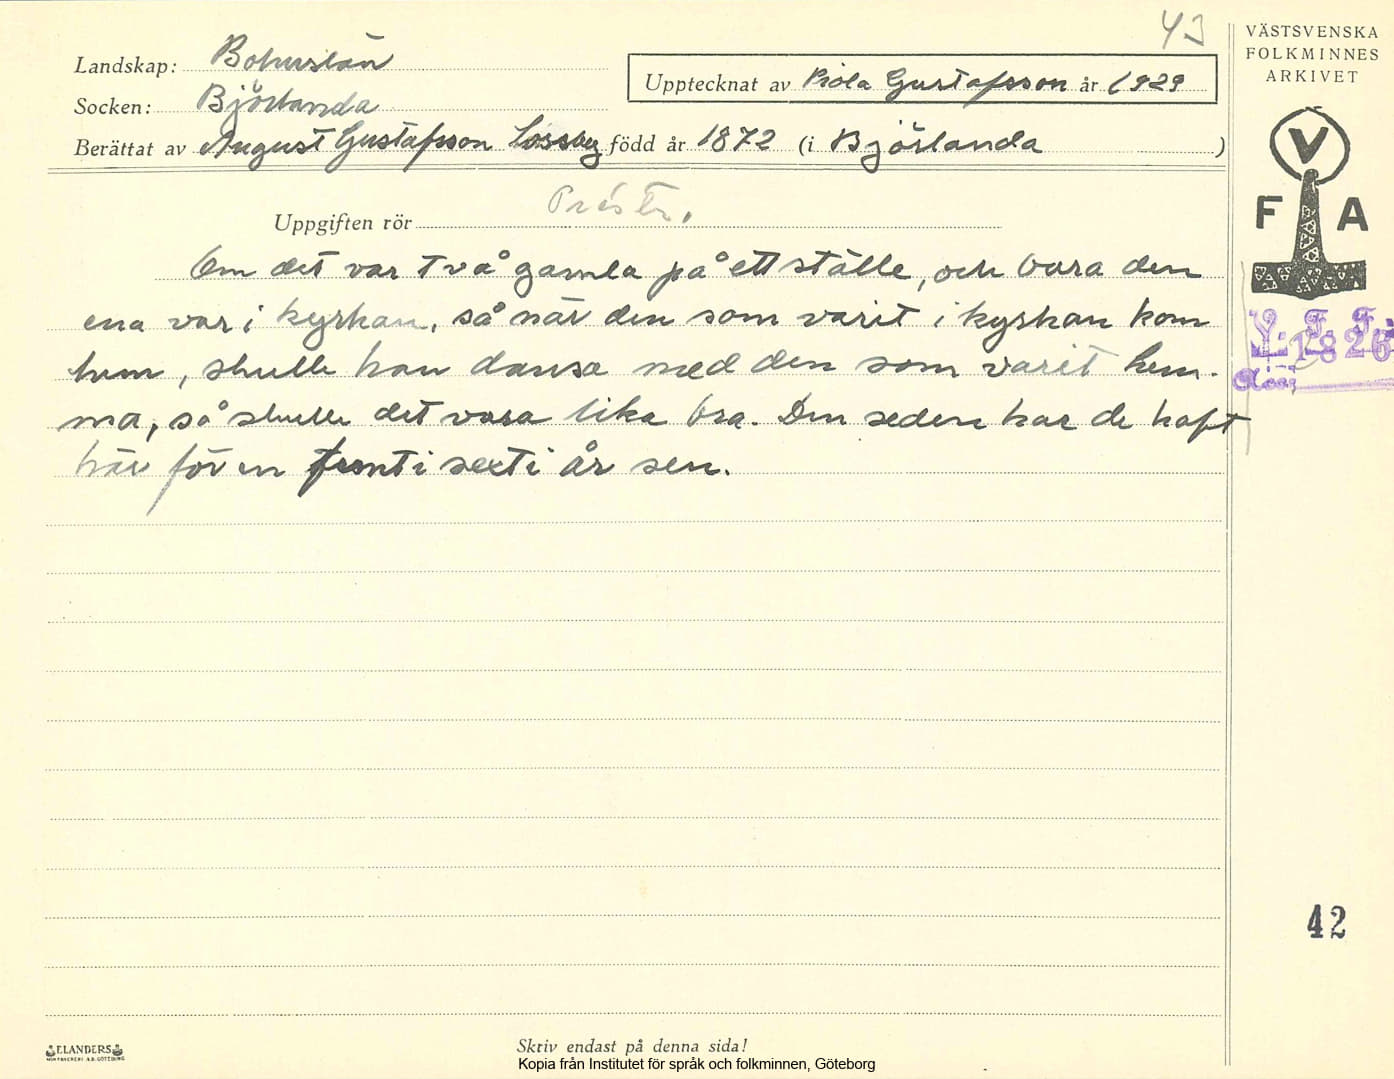 43
VÄSTSVENSKA
FOLKMINNES
ARKIVET
Landskap: Bohuslän
Upptecknat av Gustafsson år 1929
Socken: Björlanda
Berättat av August Gustafsson född år 1872 (i Björlanda)
V
F A
Uppgiften rör
Om det var två gamla på ett ställe, och bara den
ena var i kyrkan, så när den som varit i kyrkan kom
hem, skulle han dansa med den som varit hem-
ma, så skulle det vara lika bra. Den seden har de haft
här för en femti sexti år sen.
V. F. F.
1826
42
ELANDERS
Skriv endast på denna sida!
Kopia från Institutet för språk och folkminnen, Göteborg